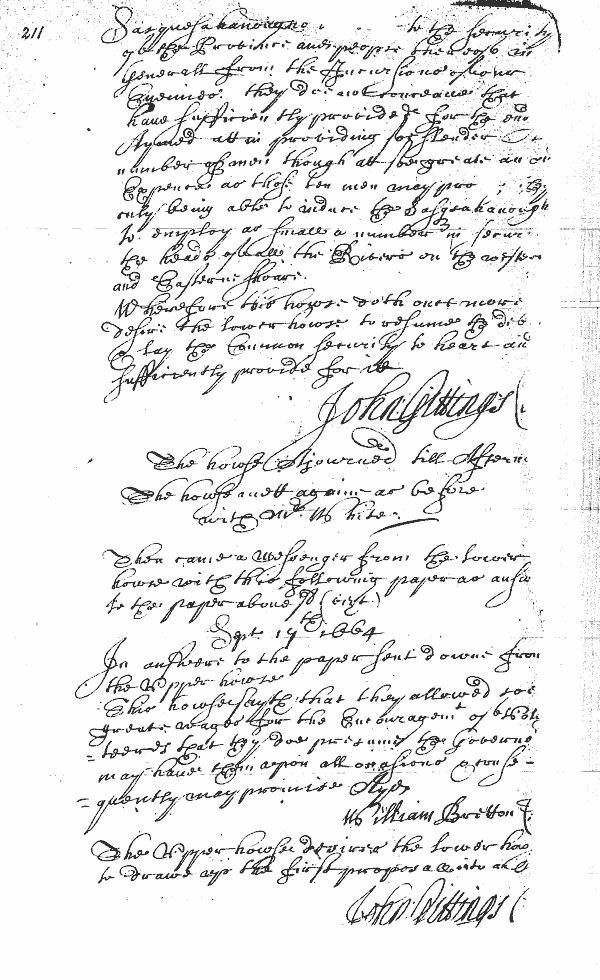 211
Sasquesahanoughs to the security
of the Province and people thereof in
Generall from the Incursions of our
Enemies they doe not conceave that
have sufficiently provided for the end
Aymed att in providing soe slender
number of men though att soe greate an
Expence as those ten men may pro
only being able to induce the Sasquahanough
to employ as small a number in secur
the heads of all the Rivers on the wester
and Easterne shoare.
Wherefore this howse doth once more
desire the lower howse to resume the deb
& lay the Common security to heart and
sufficiently provide for itt
John Gittings
The howse Adjourned till Aftern
The howse mett againe as before
with Mr White
Then came a Messenger from the lower
howse with this following paper as answ
to the paper above sd (vizt)
Sept 19th 1664
In answere to the paper sent downe from
the Upper howse
This howse sayth that they allowed soe
greate wages for the Encouragemt of
=teeres that they doe presume the Governo
may have them upon all occasions & conse-
=quently may promise Ayd
William Bretton
The Upper howse desires the lower how
to drawe up the first proposall into an
John Gittings